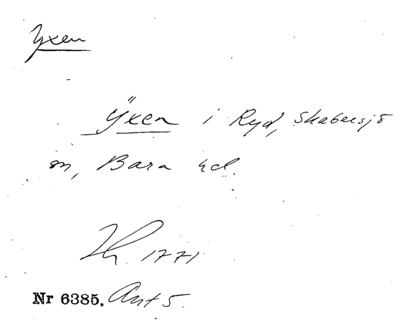 Yxen
Ÿxen i Ryd, Skabersjö
sn, Bara hd.
1771
Nr 6385. Ant 5.